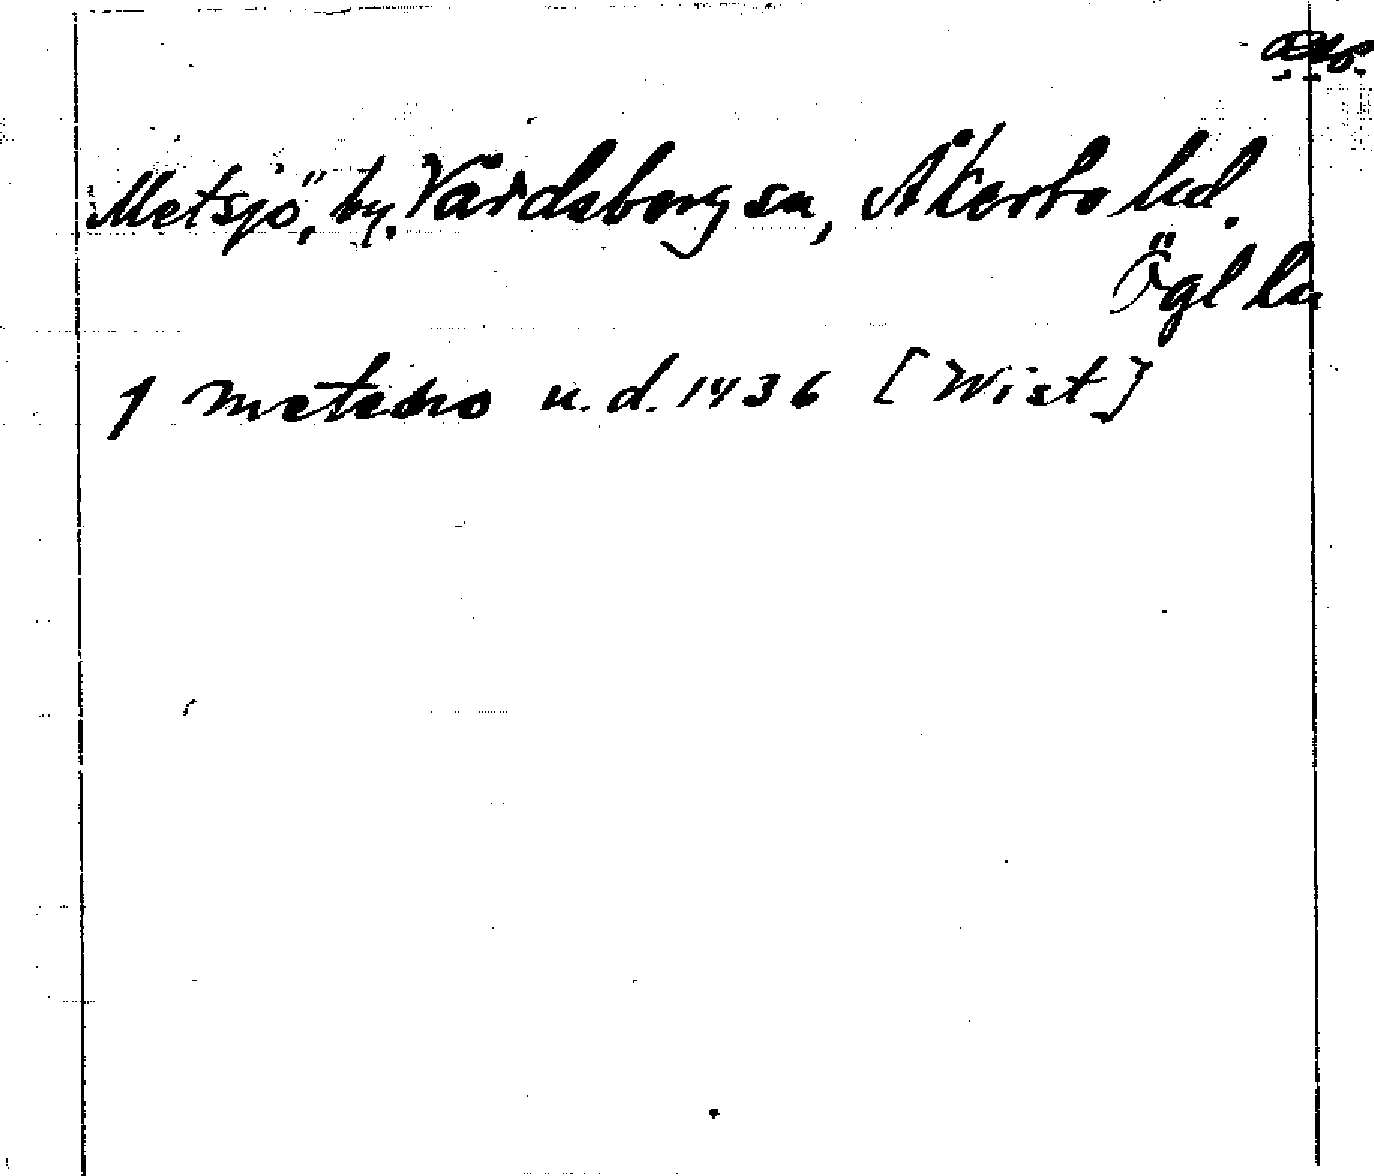 Metsjö, by. Vårdsberg sn, Åkerbo hd.
Ögl län
J metasio u.d. 1436 [Wist]